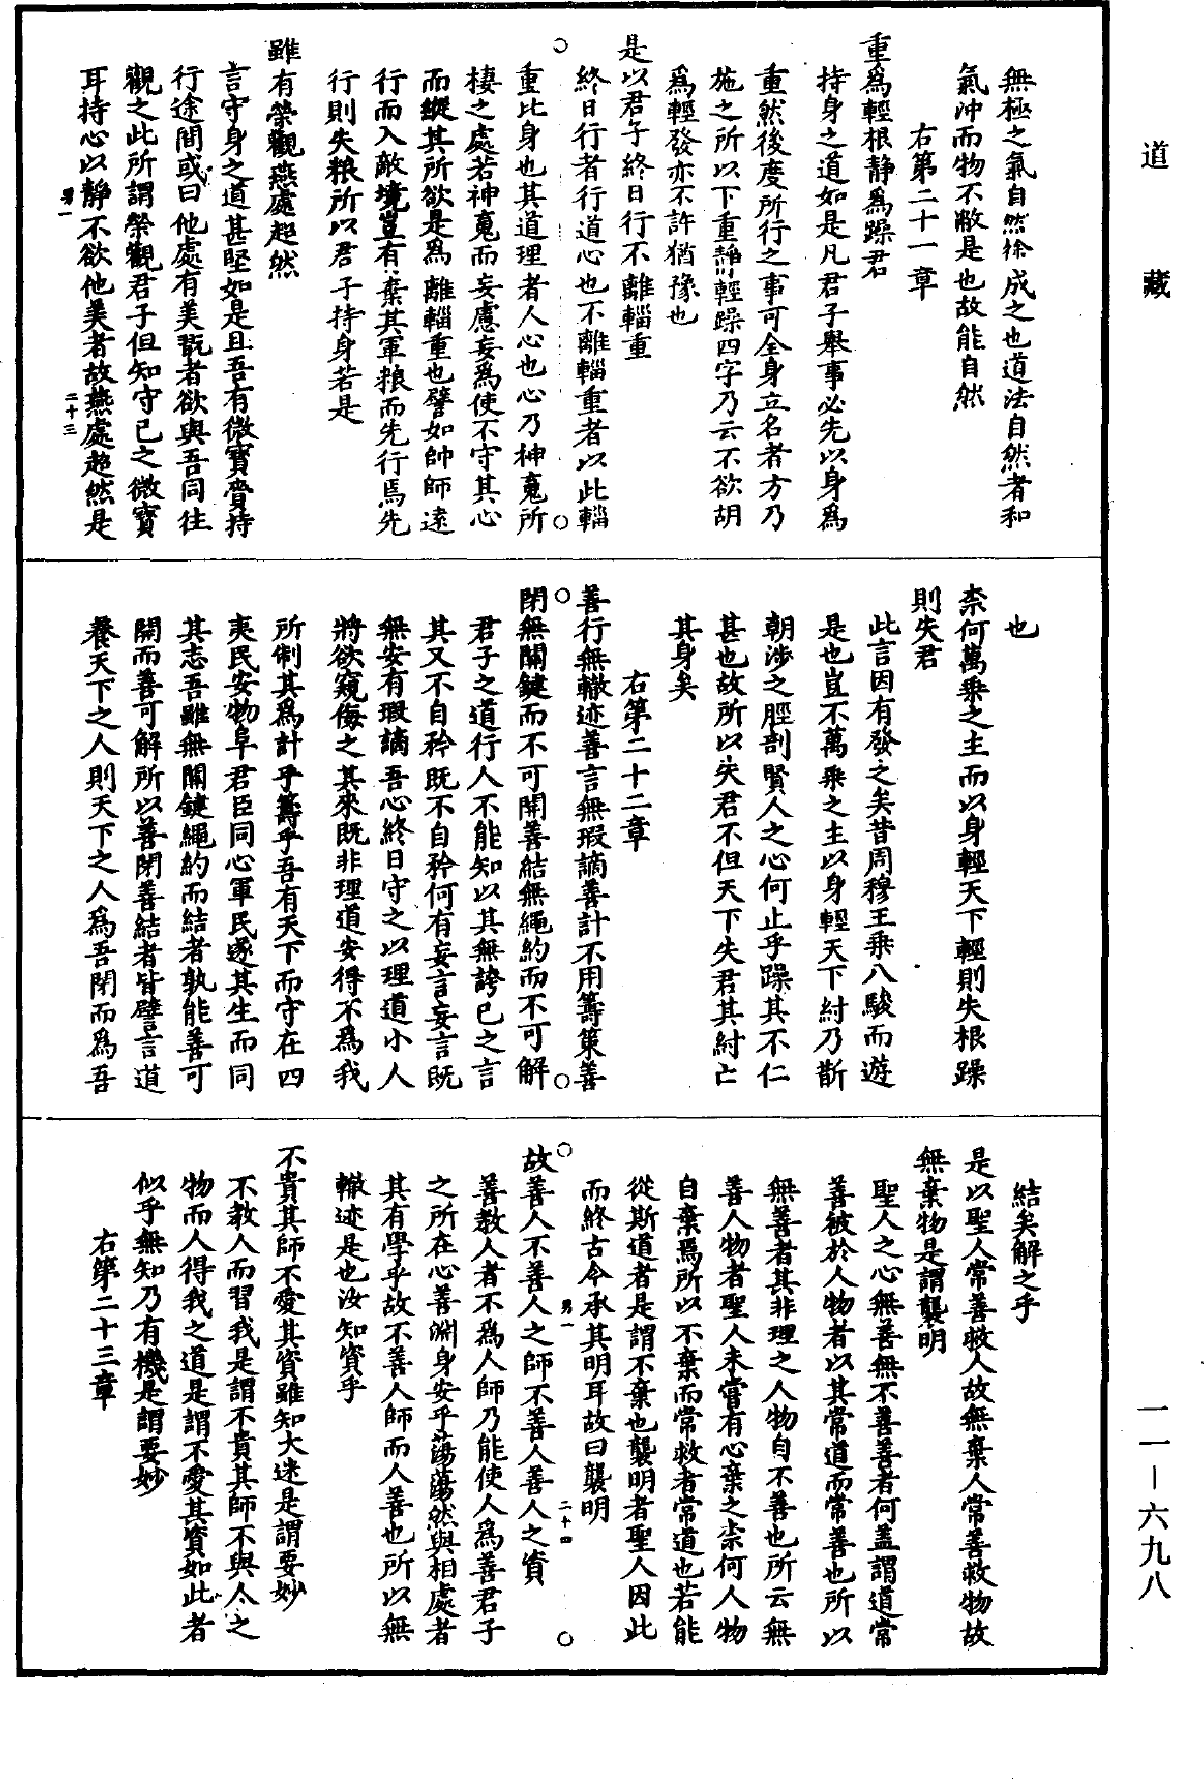 道藏
無極之氣自然徐成之也道法自然者和
氣沖而物不敝是也故能自然
右第二十一章
重爲輕根靜爲躁君
持身之道如是凡君子舉事必先以身爲
重然後度所行之事可全身立名者方乃
施之所以下重靜輕躁四字乃云不欲胡
爲輕發亦不許猶豫也
是以君子終日行不離輜重
終日行者行道心也不離輜重者以此輜
重比身也其道理者人心也心乃神魂所
棲之處若神魂而妄慮妄爲使不守其心
而縱其所欲是爲離輜重也譬如帥師遠
行而入敵境豈有棄其軍粮而先行焉先
行則失粮所以君子持身若是
雖有榮觀燕處超然
言守身之道甚堅如是且吾有微寶賫持
行途間或曰他處有美翫者欲與吾同往
觀之此所謂榮觀君子但知守己之微寶
耳持心以靜不欲他美者故燕處超然是
男一
二十三
也
柰何萬乘之主而以身輕天下輕則失根躁
則失君
此言因有發之矣昔周穆王乘八駿而遊
是也豈不萬乘之主以身輕天下紂乃斮
朝涉之脛剖賢人之心何止乎躁其不仁
甚也故所以失君不但天下失君其紂亡
其身矣
右第二十二章
善行無轍迹善言無瑕讁善計不用籌策善
閉無關鍵而不可開善結無繩約而不可解
君子之道行人不能知以其無誇己之言
其又不自矜既不自矜何有妄言妄言既
無安有瑕讁吾心終日守之以理道小人
將欲窺侮之其來既非理道安得不爲我
所制其爲計乎籌乎吾有天下而守在四
夷民安物阜君臣同心軍民遂其生而同
其志吾雖無關鍵繩約而結者孰能善可
開而善可解所以善閉善結者皆譬言道
養天下之人則天下之人爲吾閉而爲吾
結矣解之乎
是以聖人常善救人故無棄人常善救物故
無棄物是謂襲明
聖人之心無善無不善善者何蓋謂道常
善被於人物者以其常道而常善也所以
無善者其非理之人物自不善也所云無
善人物者聖人未嘗有心棄之柰何人物
自棄焉所以不棄而常救者常道也若能
從斯道者是謂不棄也襲明者聖人因此
而終古今承其明耳故曰襲明
男一
二十四
故善人不善人之師不善人善人之資
善教人者不爲人師乃能使人爲善君子
之所在心善淵身安乎蕩蕩然與相處者
其有學乎故不善人師而人善也所以無
轍迹是也汝知資乎
不貴其師不愛其資雖知大迷是謂要妙
不教人而習我是謂不貴其師不與人之
物而人得我之道是謂不愛其資如此者
似乎無知乃有機是謂要妙
右第二十三章
一一—六九八